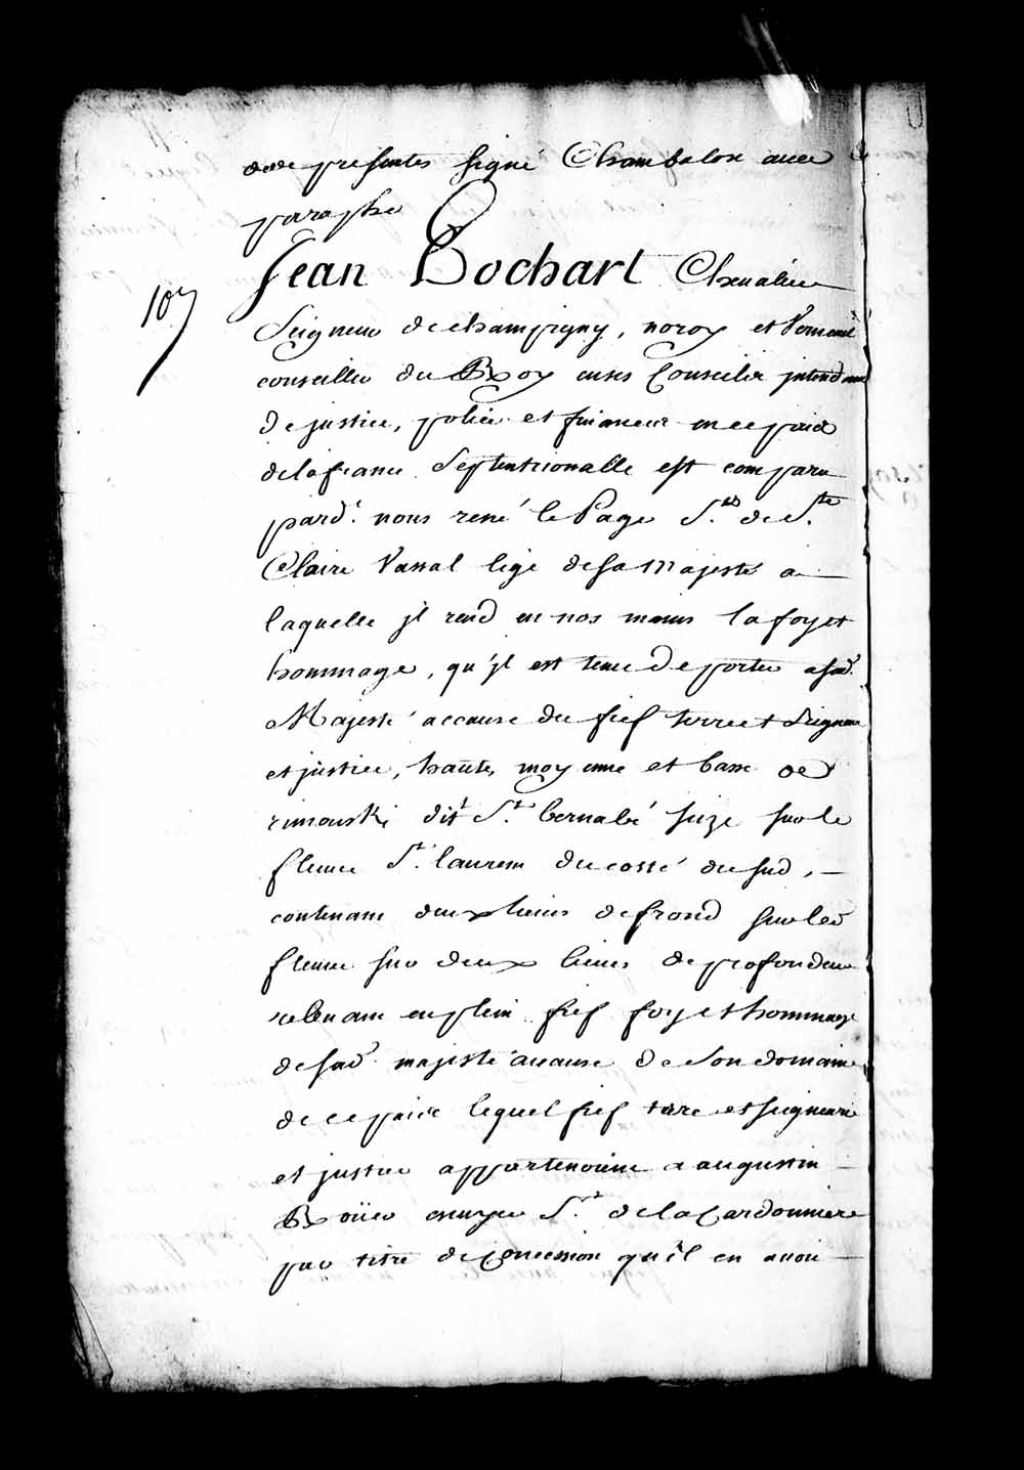 des presentes signé Chambalon avec
paraphe
107
Jean Bochart Chevalier
Seigneur de champigny, noroy et Verneuil
conseiller du Roy en ses Conseils jntendant
de justice, police et finances en ce païs
de la france Septentrionalle est comparu
pard.t nous rené le Page S.r de S.te
Claire Vassal lige de sa Majesté a
laquelle jl rend en nos mains la foy et
hommage, qu'jl est tenu de porter a sad.
Majesté a cause du fief terre et Seigneurie
et justice, haute, moyenne et basse de
rimouski dit S.t bernabé size sur le
fleuve S.t laurem du costé du sud,
contenam deux lieues de frond sur led
fleuve sur deux lieues de profondeur
relevam en plein fief foy et hommage
de sad. majesté a cause de son domaine
de ce païs lequel fief terre et seigneurie
et justice appartenoient a augustin
Roüer escuyer S.r de la Cardonniere
par titre de Concession qu'il en avoit